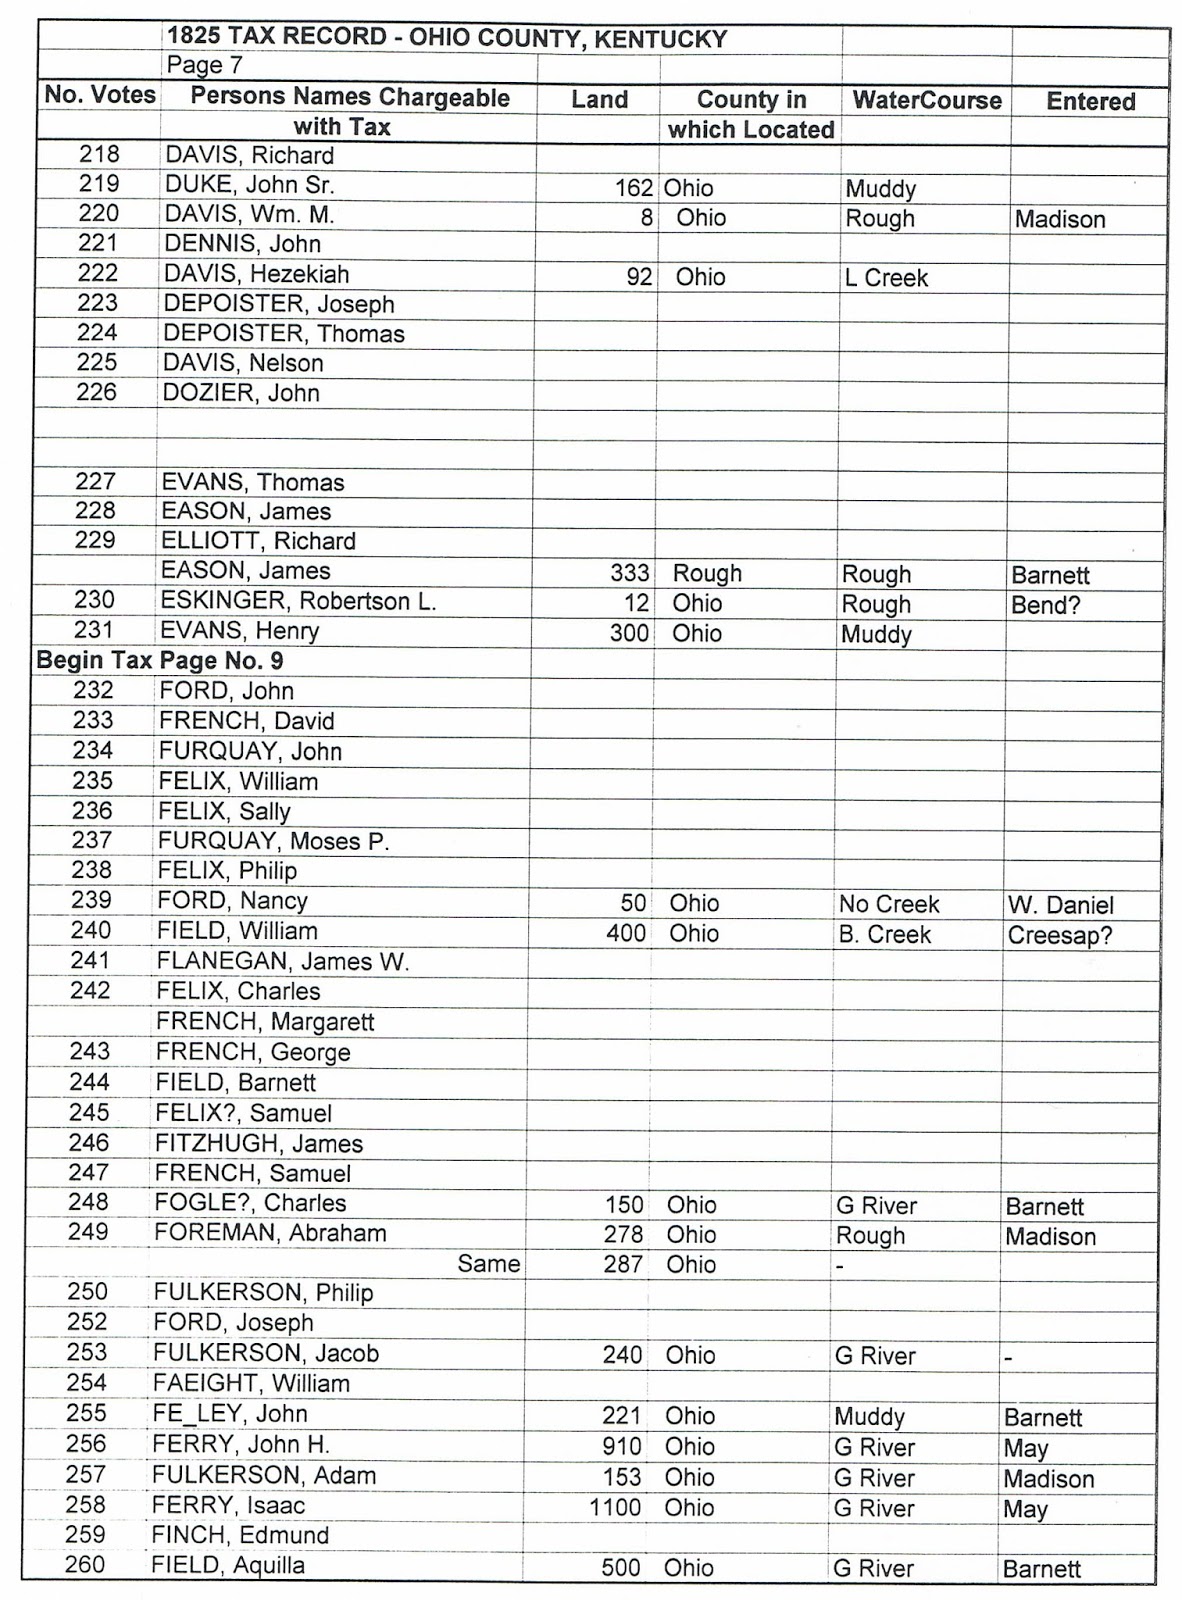 1825 TAX RECORD - OHIO COUNTY, KENTUCKY
Page 7
No. Votes Persons Names Chargeable Land County in WaterCourse Entered
with Tax which Located
218 DAVIS, Richard
219 DUKE, John Sr. 162 Ohio Muddy
220 DAVIS, Wm. M. 8 Ohio Rough Madison
221 DENNIS, John
222 DAVIS, Hezekiah 92 Ohio L Creek
223 DEPOISTER, Joseph
224 DEPOISTER, Thomas
225 DAVIS, Nelson
226 DOZIER, John
227 EVANS, Thomas
228 EASON, James
229 ELLIOTT, Richard
EASON, James 333 Rough Rough Barnett
230 ESKINGER, Robertson L. 12 Ohio Rough Bend?
231 EVANS, Henry 300 Ohio Muddy
Begin Tax Page No. 9
232 FORD, John
233 FRENCH, David
234 FURQUAY, John
235 FELIX, William
236 FELIX, Sally
237 FURQUAY, Moses P.
238 FELIX, Philip
239 FORD, Nancy 50 Ohio No Creek W. Daniel
240 FIELD, William 400 Ohio B. Creek Creesap?
241 FLANEGAN, James W.
242 FELIX, Charles
FRENCH, Margarett
243 FRENCH, George
244 FIELD, Barnett
245 FELIX?, Samuel
246 FITZHUGH, James
247 FRENCH, Samuel
248 FOGLE?, Charles 150 Ohio G River Barnett
249 FOREMAN, Abraham 278 Ohio Rough Madison
Same 287 Ohio -
250 FULKERSON, Philip
252 FORD, Joseph
253 FULKERSON, Jacob 240 Ohio G River -
254 FAEIGHT, William
255 FE_LEY, John 221 Ohio Muddy Barnett
256 FERRY, John H. 910 Ohio G River May
257 FULKERSON, Adam 153 Ohio G River Madison
258 FERRY, Isaac 1100 Ohio G River May
259 FINCH, Edmund
260 FIELD, Aquilla 500 Ohio G River Barnett